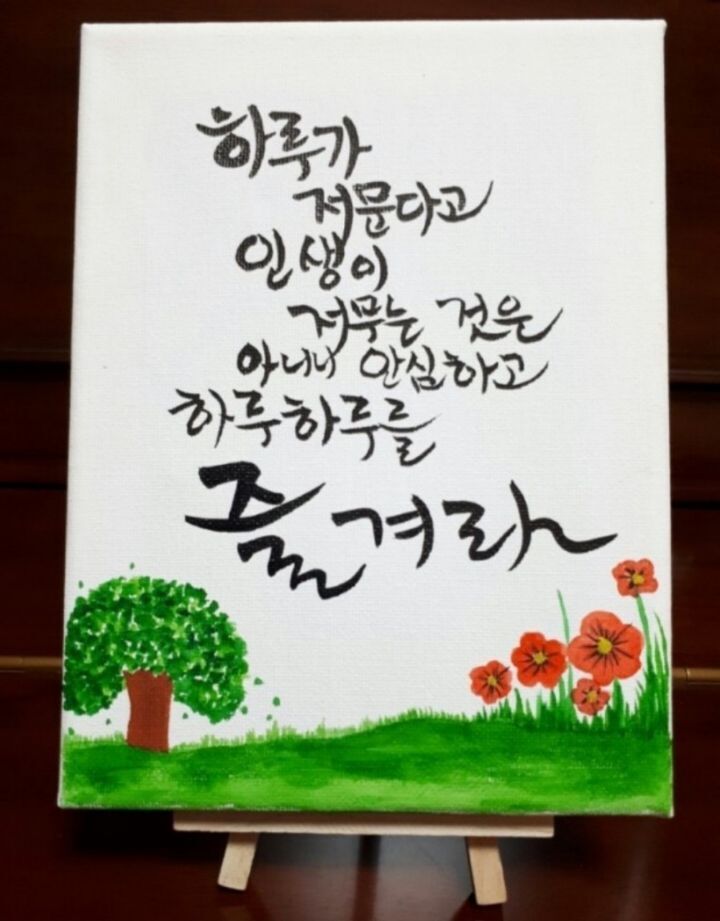 하루가
저문다고
인생이
저무는 것은
아니니 안심하고
하루하루를
즐겨라